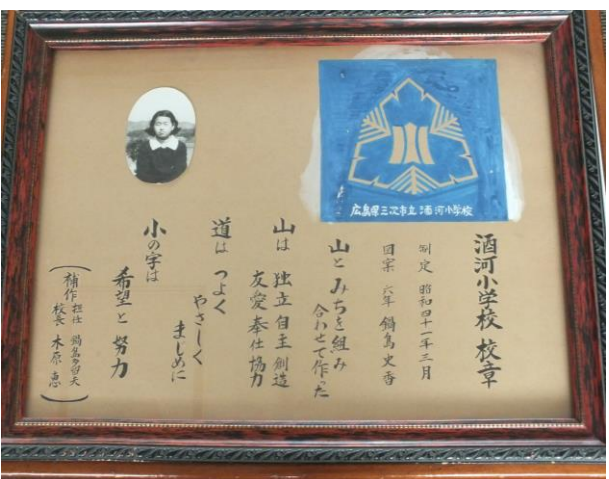 広島県三次市立 酒河小学校
酒河小学校 校章
制定 昭和四十一年三月
図案 六年 鍋島史香
山とみちを組み
合わせて作った
山は 独立 自主 創造
友愛 奉仕 協力
道は つよく
やさしく
まじめに
小の字は
希望と 努力
補作 担任 鍋島
校長 木原 恵